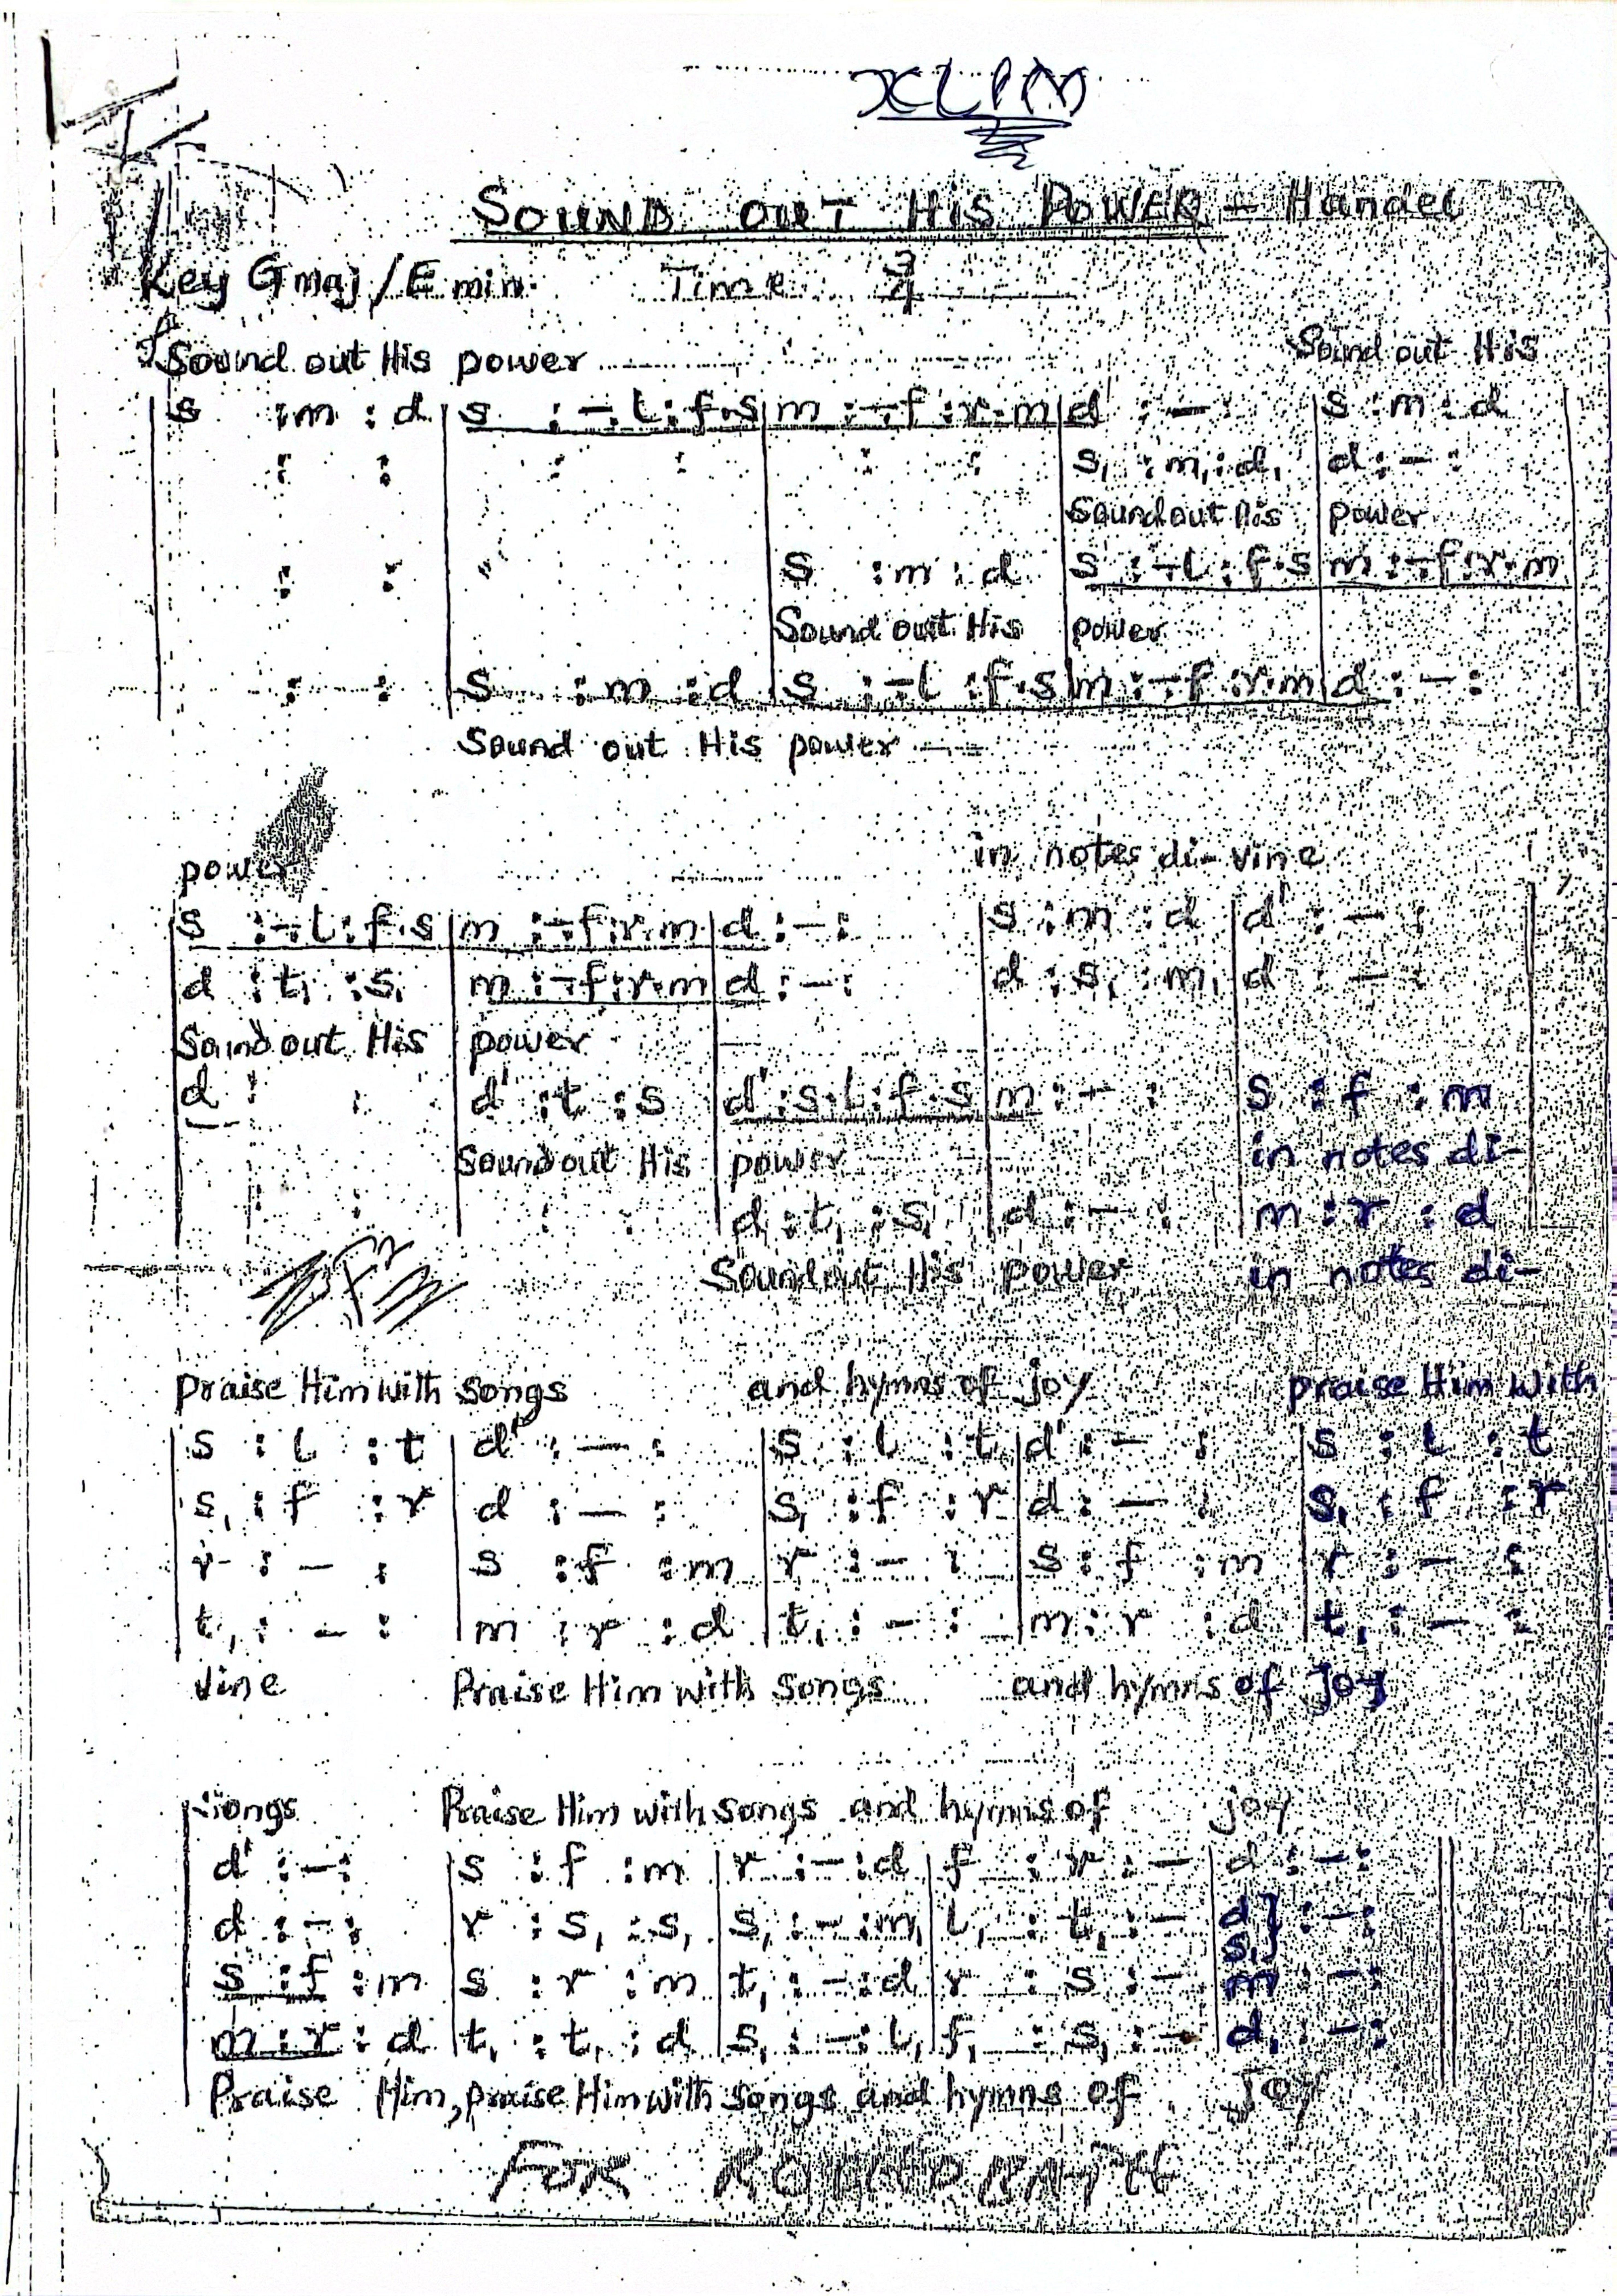 XLIM
SOUND OUT HIS POWER - Handel
Key G maj/E min. Time 3/4
Sound out His power Sound out His
| s : m : d | s : -.l : f.s | m : -.f : r.m | d' : - : | s : m : d
| : : | : : | : : | s, : m, : d, | d : - :
Sound out His power
| : : | | s : m : d | s : -.l : f.s | m : -.f : r.m
Sound out His power
| : : | s : m : d | s : -.l : f.s | m : -.f : r.m | d : - :
Sound out His power
power in notes di-vine
| s : -.l : f.s | m : -.f : r.m | d : - : | s : m : d | d' : - :
| d : t, : s, | m : -.f : r.m | d : - : | d : s, : m, | d : - :
Sound out His power
| d : : | d' : t : s | d' : s.l : f.s | m : - : | s : f : m
Sound out His power in notes di-
| : : | : : | d : t, : s, | d : - : | m : r : d
Sound out His power in notes di-
praise Him with songs and hymns of joy praise Him with
| s : l : t | d' : - : | s : l : t | d' : - : | s : l : t
| s, : f : r | d : - : | s, : f : r | d : - : | s, : f : r
| r : - : | s : f : m | r : - : | s : f : m | r : - :
| t, : - : | m : r : d | t, : - : | m : r : d | t, : - :
vine Praise Him with songs and hymns of joy
songs Praise Him with songs and hymns of joy
| d' : - : | s : f : m | r : - : d | f : r : - | d : - : ||
| d : - : | r : s, : s, | s, : - : m, | l, : t, : - | d s,} : - : ||
| s : f : m | s : r : m | t, : - : d | r : s : - | m : - : ||
| m : r : d | t, : t, : d | s, : - : l, | f, : s, : - | d, : - : ||
Praise Him, praise Him with songs and hymns of joy
FOR